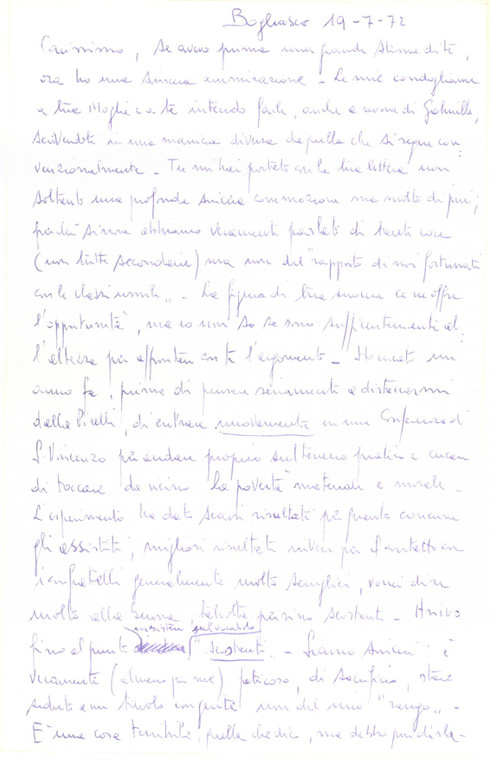 Bogliasco 19-7-72
Carissimo, se avevo prima una grande stima di te,
ora ho una sincera ammirazione - Le mie condoglianze
a tua moglie e a te intendo farle, anche a nome di
scrivendoti in una maniera diversa da quella che si segue con:
venzionalmente - Tu mi hai portato con la tua lettera non
soltanto una profonda sincera commozione ma molto di più;
perché sinora abbiamo veramente parlato di tante cose
(non tutte secondarie) ma non del "rapporto di noi fortunati
con le classi umili" - La figura di tua suocera ce ne offre
l'opportunità, ma io non so se sono sufficientemente al:
l'altezza per affrontare con te l'argomento - Ho cercato un
anno fa, prima di pensare seriamente a distaccarmi
dalla Pirelli, di entrare nuovamente in una Conferenza di
S. Vincenzo per andare proprio sul terreno pratico e cercare
di toccare da vicino la povertà materiale e morale -
L'esperimento ha dato scarsi risultati per quanto concerne
gli assistiti, migliori risultati invece per il contatto con
i confratelli generalmente molto semplici, vorrei dire
molto alla buona, talvolta persino scostanti - Arrivo
fino al punto "scostanti" - Siamo sinceri: è
veramente (almeno per me) faticoso, di sacrificio, stare
seduto a un tavolo con gente non del mio "rango" -
E' una cosa terribile, quella che dico, ma debbo pur dirla -